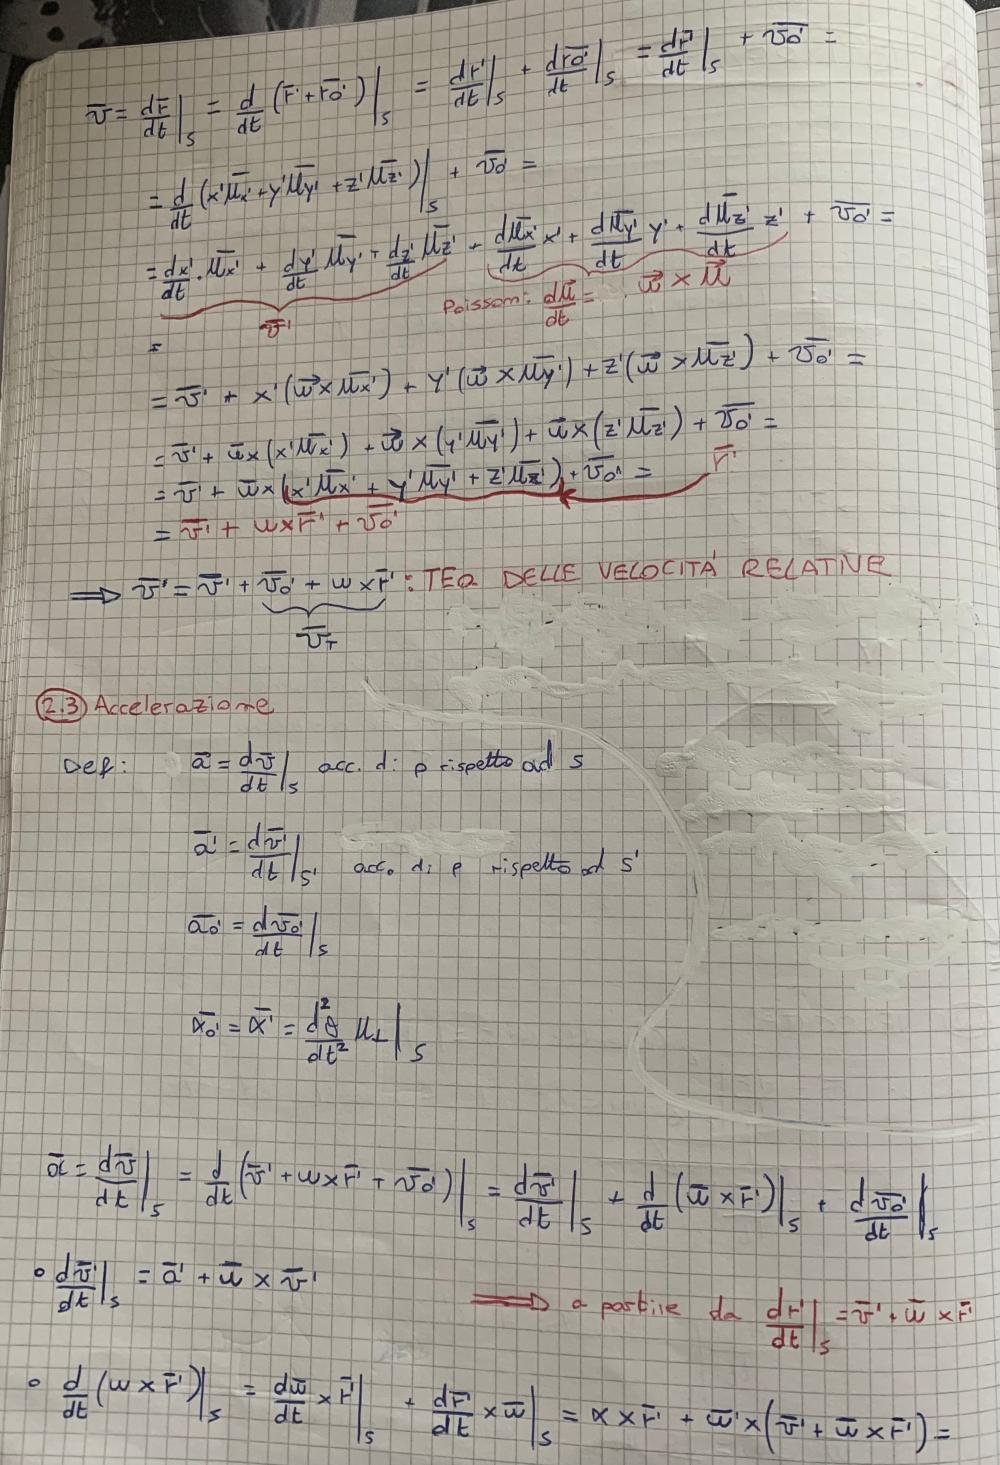 v̄ = dr̄/dt|s = d/dt (r̄' + r̄o')|s = dr̄'/dt|s + dr̄o'/dt|s = dr̄'/dt|s + v̄o' =
= d/dt (x'μ̄x' + y'μ̄y' + z'μ̄z')|s + v̄o' =
= dx'/dt · μ̄x' + dy'/dt μ̄y' + dz'/dt μ̄z' + dμ̄x'/dt x' + dμ̄y'/dt y' + dμ̄z'/dt z' + v̄o' =
v̄' Poisson: dμ̄/dt = w⃗ × μ⃗
=
= v̄' + x'(w⃗ × μ̄x') + y'(w⃗ × μ̄y') + z'(w⃗ × μ̄z') + v̄o' =
= v̄' + w̄ × (x'μ̄x') + w⃗ × (y'μ̄y') + w̄ × (z'μ̄z') + v̄o' =
= v̄' + w̄ × (x'μ̄x' + y'μ̄y' + z'μ̄z') + v̄o' = r̄'
= v̄' + w × r̄' + v̄o'
⟹ v̄' = v̄' + v̄o' + w × r̄' : TEO DELLE VELOCITÁ RELATIVE
v̄T
2.3 Accelerazione
Def: ā = dv̄/dt|s acc. di p rispetto ad s
ā' = dv̄'/dt|s' acc. di p rispetto ad s'
āo' = dv̄o'/dt|s
ᾱo' = ᾱ' = d²θ/dt² μ⊥|s
ā = dv̄/dt|s = d/dt (v̄' + w × r̄' + v̄o')|s = dv̄'/dt|s + d/dt (w̄ × r̄')|s + dv̄o'/dt|s
• dv̄'/dt|s = ā' + w̄ × v̄' ⟹ a partire da dr'/dt|s = v̄' + w̄ × r̄'
• d/dt (w × r̄')|s = dw̄/dt × r̄'|s + dr̄'/dt × w̄|s = α × r̄' + w̄' × (v̄' + w̄ × r̄') =